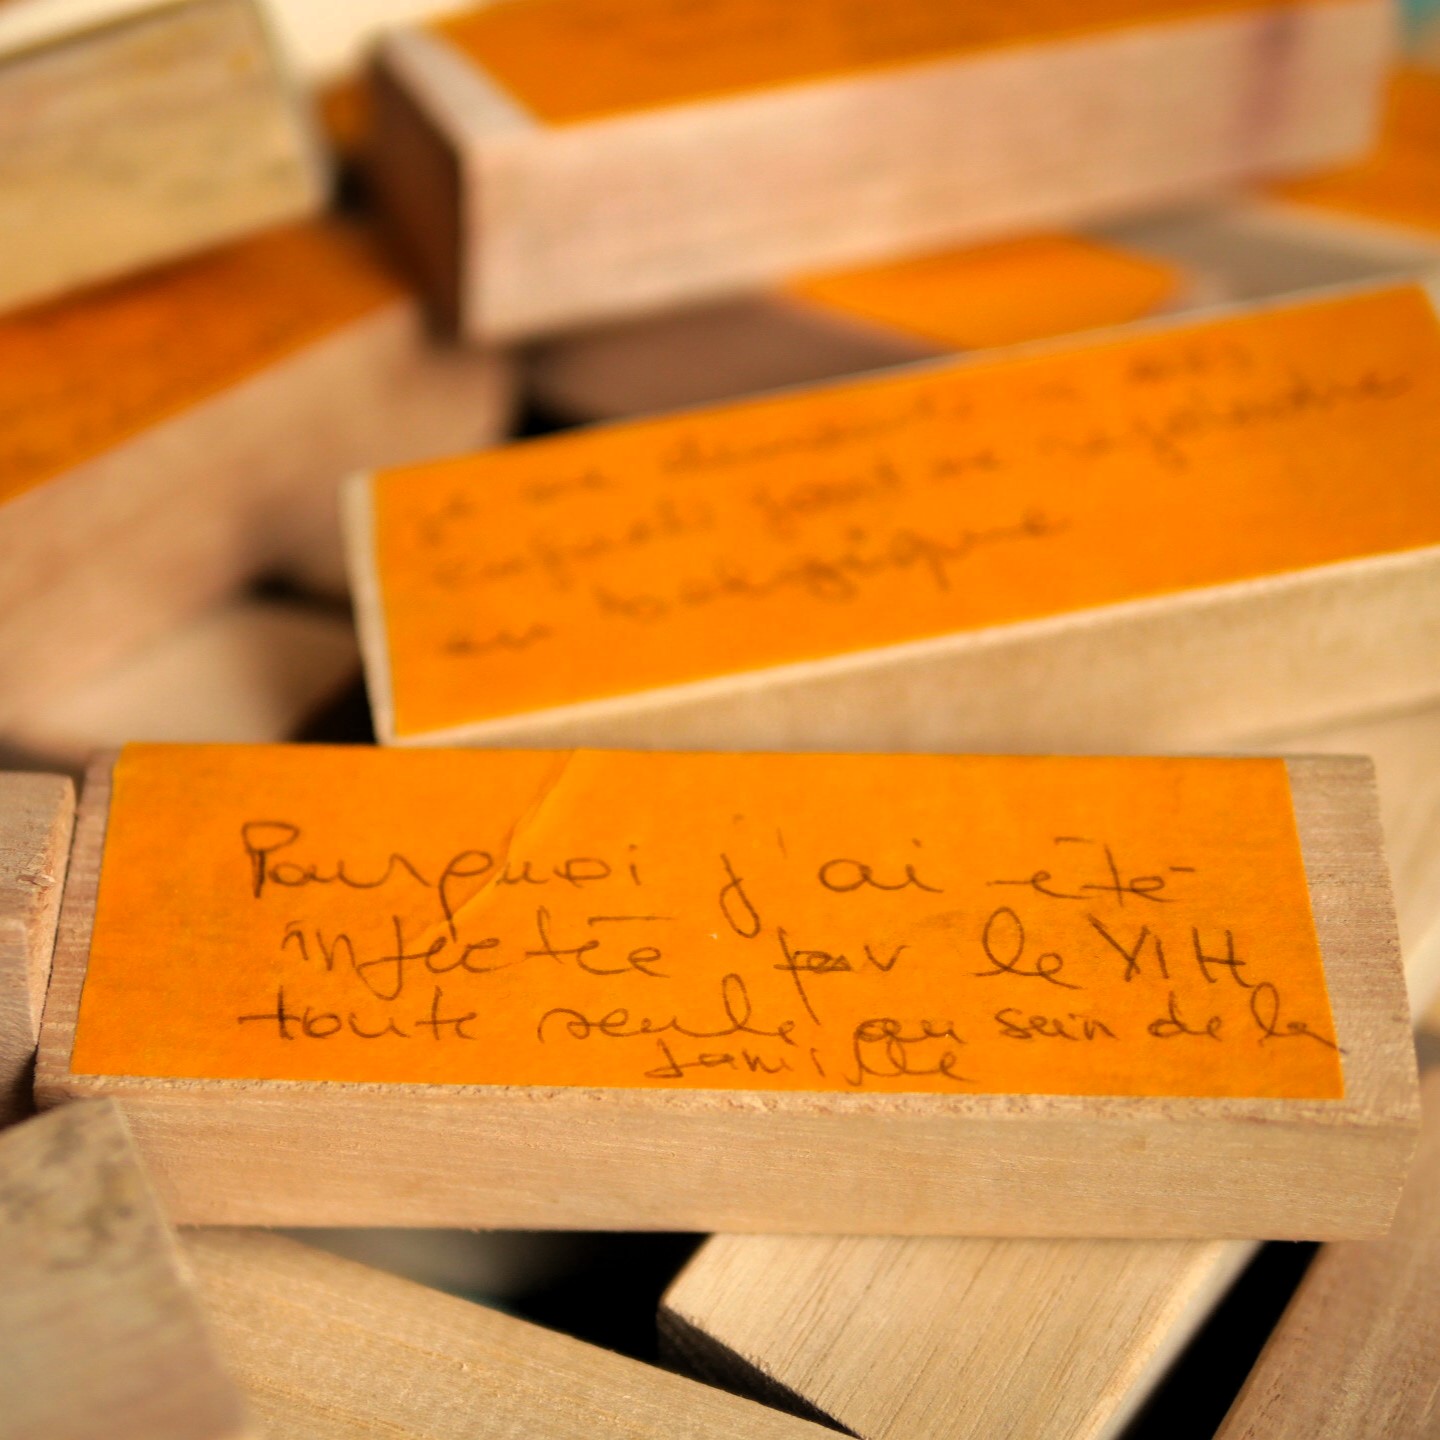 je me demande si mes
enfants vont me rejoindre
en belgique
Pourquoi j'ai été
infectée par le VIH
toute seule au sein de la
famille